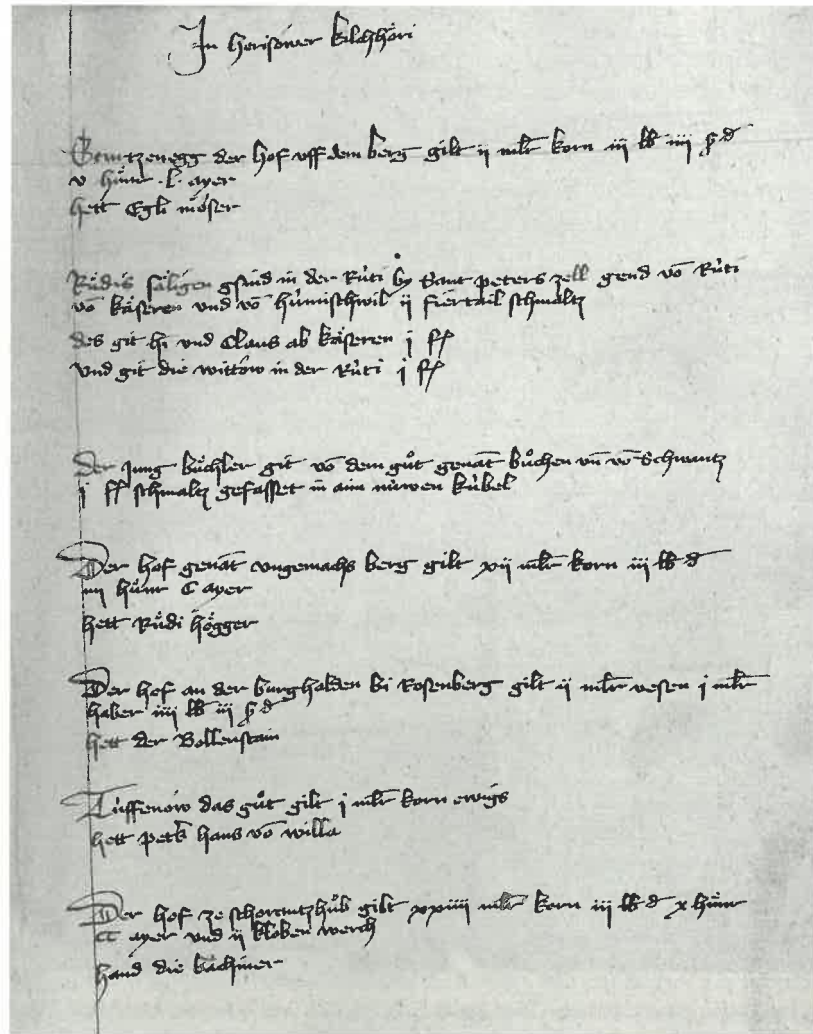 In herisower kilchhöri
der hof uff dem berg gilt ij mlr korn iij lb iiij ß d
v hůnr . l . ayer
hett Egli möser
Růdis säligen gsind in der Rüti by Sant peters zell gend vō Rüti
vō käseren und vō hůmischwil ij fiertail schmaltz
des git hi und Claus ab käseren j ff
und git die wittow in der Rüti j ff
Der jung bůchler git vō dem gůt genāt bůchen vn̄ vō Schwantz
j ff schmaltz gefasset in aim nüwen kübel
Der hof genāt ungemachs berg gilt xij mlr korn iij lb d
iiij hůnr C ayer
hett Růdi högger
Der hof an der burghalden bi Rosenberg gilt ij mlr vesen j mlr
haber iiij lb iij ß d
hett der Bollenstain
Tüffenöw das gůt gilt j mlr korn ewigs
hett hans vō willa
Der hof ze gilt xxiiij mlr korn iij lb d x hůnr
CC ayer und ij kloben werch
hand die